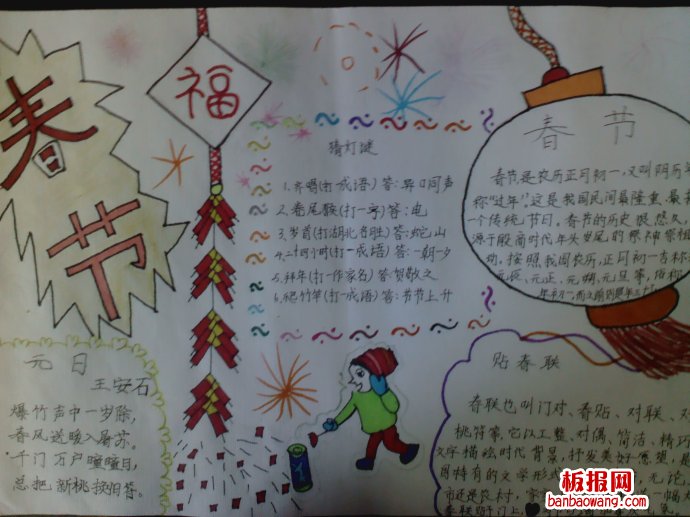 春节
福
猜灯谜
1.齐唱(打一成语)答:异口同声
2.卷尾猴(打一字)答:电
3.岁首(打湖北名胜)答:蛇山
4.二十四小时(打一成语)答:一朝一夕
5.拜年(打一作家名)答:贺敬之
6.爬竹竿(打一成语)答:节节上升
春节
春节是农历正月初一,又叫阴历
称"过年".这是我国民间最隆重、最
一个传统节日。春节的历史很悠久,
源于殷商时代年头岁尾的祭神祭祖
动。按照我国农历,正月初一古称
元辰、元正、元朔、元旦等,俗称
年初一
元日
王安石
爆竹声中一岁除,
春风送暖入屠苏。
千门万户曈曈日,
总把新桃换旧符。
贴春联
春联也叫门对、春贴、对联、对
桃符等,它以工整、对偶、简洁、精巧
文字描绘时代背景,抒发美好愿望,是
国特有的文学形式
市还是农村,家
春联贴于门上
板报网
banbaowang.com